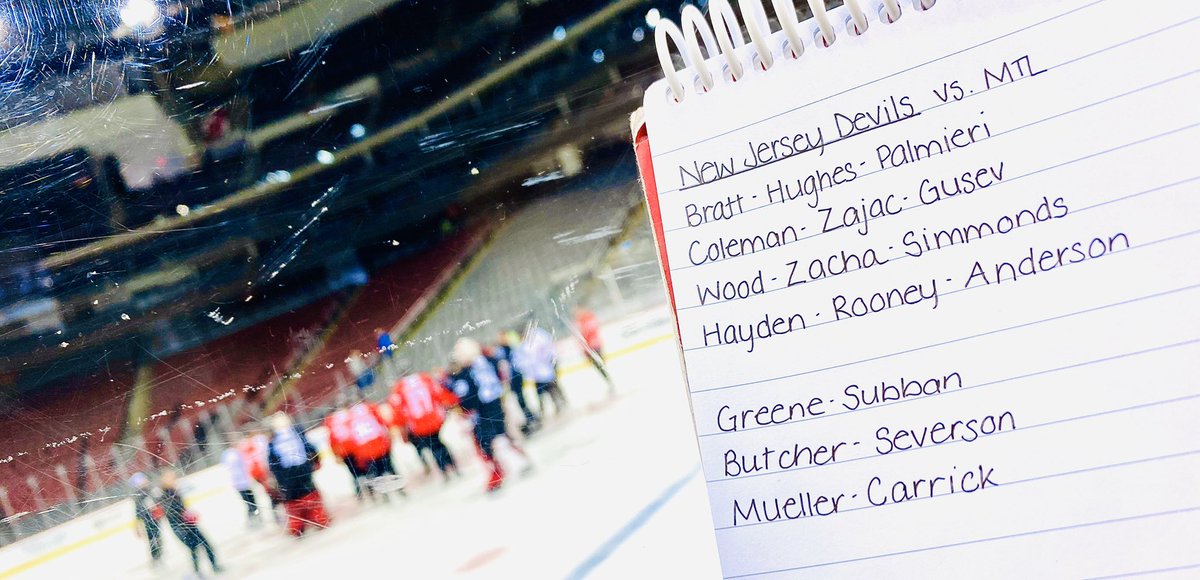 New Jersey Devils vs. MTL
Bratt - Hughes - Palmieri
Coleman - Zajac - Gusev
Wood - Zacha - Simmonds
Hayden - Rooney - Anderson
Greene - Subban
Butcher - Severson
Mueller - Carrick